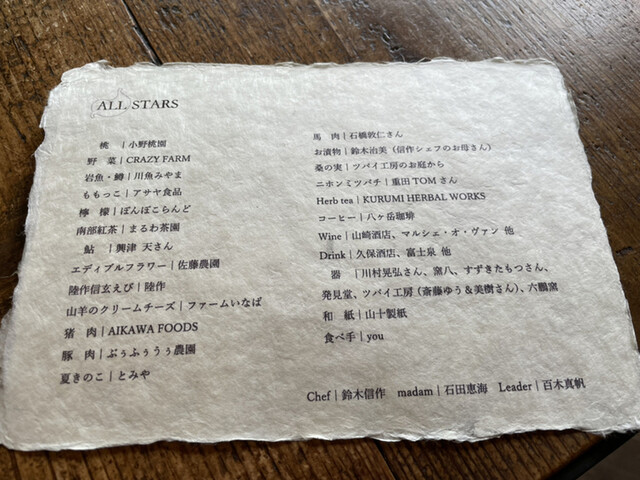 ALL STARS
桃 | 小野桃園
野 菜 | CRAZY FARM
岩魚・鱒 | 川魚みやま
ももっこ | アサヤ食品
檸 檬 | ぽんぽこらんど
南部紅茶 | まるわ茶園
鮎 | 興津 天さん
エディブルフラワー | 佐藤農園
陸作信玄えび | 陸作
山羊のクリームチーズ | ファームいなば
猪 肉 | AIKAWA FOODS
豚 肉 | ぶぅふぅうぅ農園
夏きのこ | とみや
馬 肉 | 石橋敦仁さん
お漬物 | 鈴木治美（信作シェフのお母さん）
桑の実 | ツバイ工房のお庭から
ニホンミツバチ | 重田TOMさん
Herb tea | KURUMI HERBAL WORKS
コーヒー | 八ヶ岳珈琲
Wine | 山崎酒店、マルシェ・オ・ヴァン 他
Drink | 久保酒店、富士泉 他
器 「川村晃弘さん、窯八、すずきたもつさん、
発見堂、ツバイ工房（斎藤ゆう＆美樹さん）、六鵬窯
和 紙 | 山十製紙
食べ手 | you
Chef | 鈴木信作 madam | 石田恵海 Leader | 百木真帆